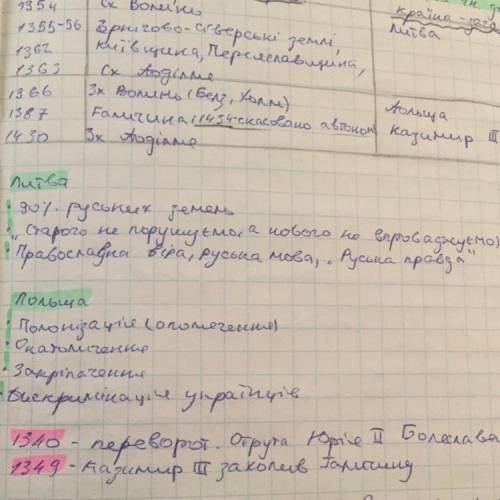 1354 Сх Волинь
країна-
1355-56 Чрнігово-Сіверські землі, Литва
1362 Київщина, Переяславщина,
1363 Сх Поділля
1366 Зх Волинь (Белз, Холм) Польща
1387 Галичина (1434 скасовано автоном) Казимир III
1430 Зх Поділля
Литва
· 90% руських земель
· "Старого не порушуємо, а нового не впроваджуємо"
· Православна віра, руська мова, "Руська правда"
Польща
· Полонізація (ополячення)
· Окатоличення
· Закріпачення
· Дискримінація українців
1340 - переворот. Отрута Юрія II Болеслава
1349 - Казимир III захопив Галичину